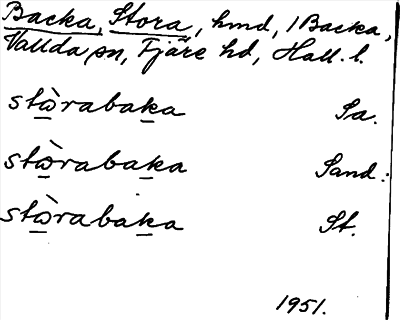 Backa, Stora, hmd, i Backa,
Vallda sn, Fjäre hd, Hall. l.
stòrabaka Sa.
stòrabaka Sand.
stòrabaka St.
1951.